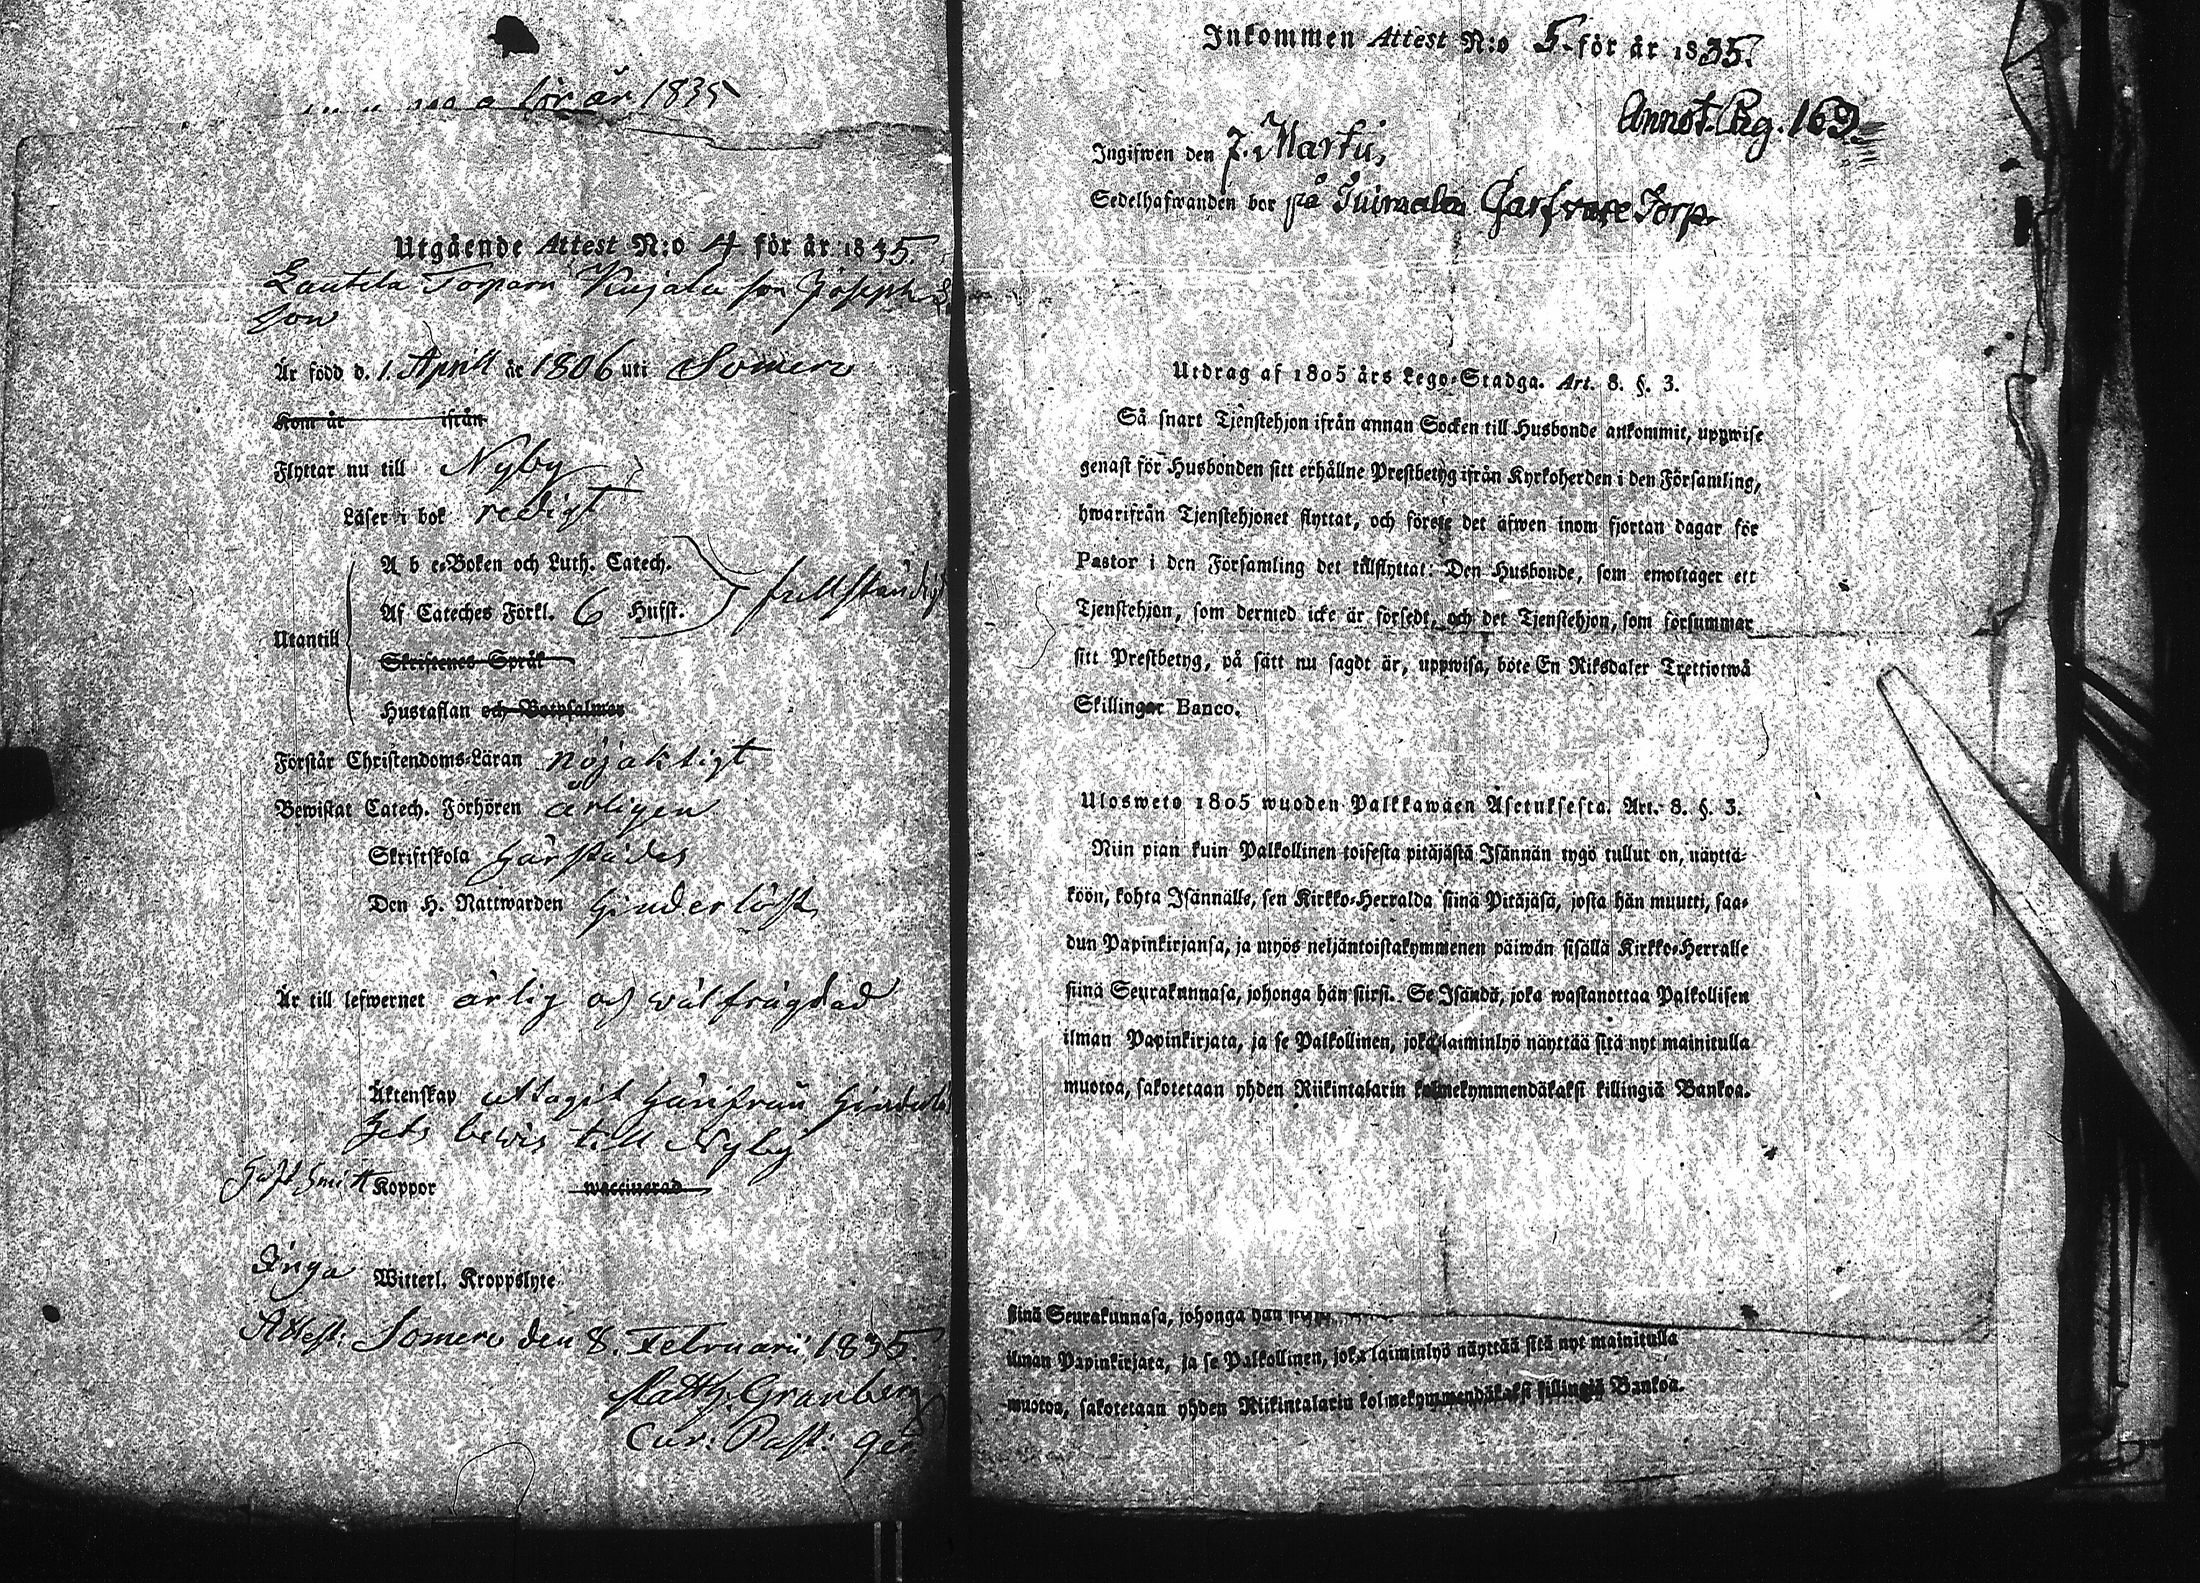 för år 1835
Utgående Attest N:o 4 för år 1835.
Lautela Torparn Kujala son Joseph
son
Är född d. 1. April år 1806 uti Somero
Kom år ifrån
Flyttar nu till Nyby
Läser i bok redigt
A b c-Boken och Luth. Catech.
Af Cateches Förkl. 6 Hufst. fullständigt
Utantill
Skriftenes Språk
Hustaflan och Botpsalmer
Förstår Christendoms-Läran nöjaktigt
Bewistat Catech. Förhören årligen
Skriftskola härstädes
Den H. Nattwarden hinderlöst
Är till lefwernet ärlig och välfrägdad
Äktenskap uttagit härifrån
bewis till Nyby
Haft Koppor waccinerad
Inga Witterl. Kroppslyte
Attest: Somero den 8. Februarii 1835.
Matth. Granberg
Inkommen Attest N:o 5. för år 1835.
Annot. Pag. 169
Ingifwen den 7. Martii,
Sedelhafwanden bor på Garfvare Torp
Utdrag af 1805 års Lego-Stadga. Art. 8. §. 3.
Så snart Tjenstehjon ifrån annan Socken till Husbonde ankommit, uppwise
genast för Husbonden sitt erhållne Prestbetyg ifrån Kyrkoherden i den Församling,
hwarifrån Tjenstehjonet flyttat, och förete det äfwen inom fjortan dagar för
Pastor i den Församling det tillflyttat: Den Husbonde, som emottager ett
Tjenstehjon, som dermed icke är försedt, och det Tjenstehjon, som försummar
sitt Prestbetyg, på sätt nu sagdt är, uppwisa, böte En Riksdaler Trettiotwå
Skillingar Banco.
Ulosweto 1805 wuoden Palkkawäen Asetuksesta. Art. 8. §. 3.
Niin pian kuin Palkollinen toisesta pitäjästä Isännän tygö tullut on, näyttä-
köön, kohta Isännälle, sen Kirkko-Herralda siinä Pitäjäsä, josta hän muutti, saa-
dun Papinkirjansa, ja myös neljäntoistakymmenen päiwän sisällä Kirkko-Herralle
siinä Seurakunnasa, johonga hän siirsi. Se Isändä, joka wastanottaa Palkollisen
ilman Papinkirjata, ja se Palkollinen, joka laiminlyö näyttää sitä nyt mainitulla
muotoa, sakotetaan yhden Riikintalarin kolmekymmendäkaksi killingiä Bankoa.
siinä Seurakunnasa, johonga hän
ilman Papinkirjata, ja se Palkollinen, joka laiminlyö näyttää sitä nyt mainitulla
muotoa, sakotetaan yhden Riikintalarin kolmekymmendäkaksi killingiä Bankoa.